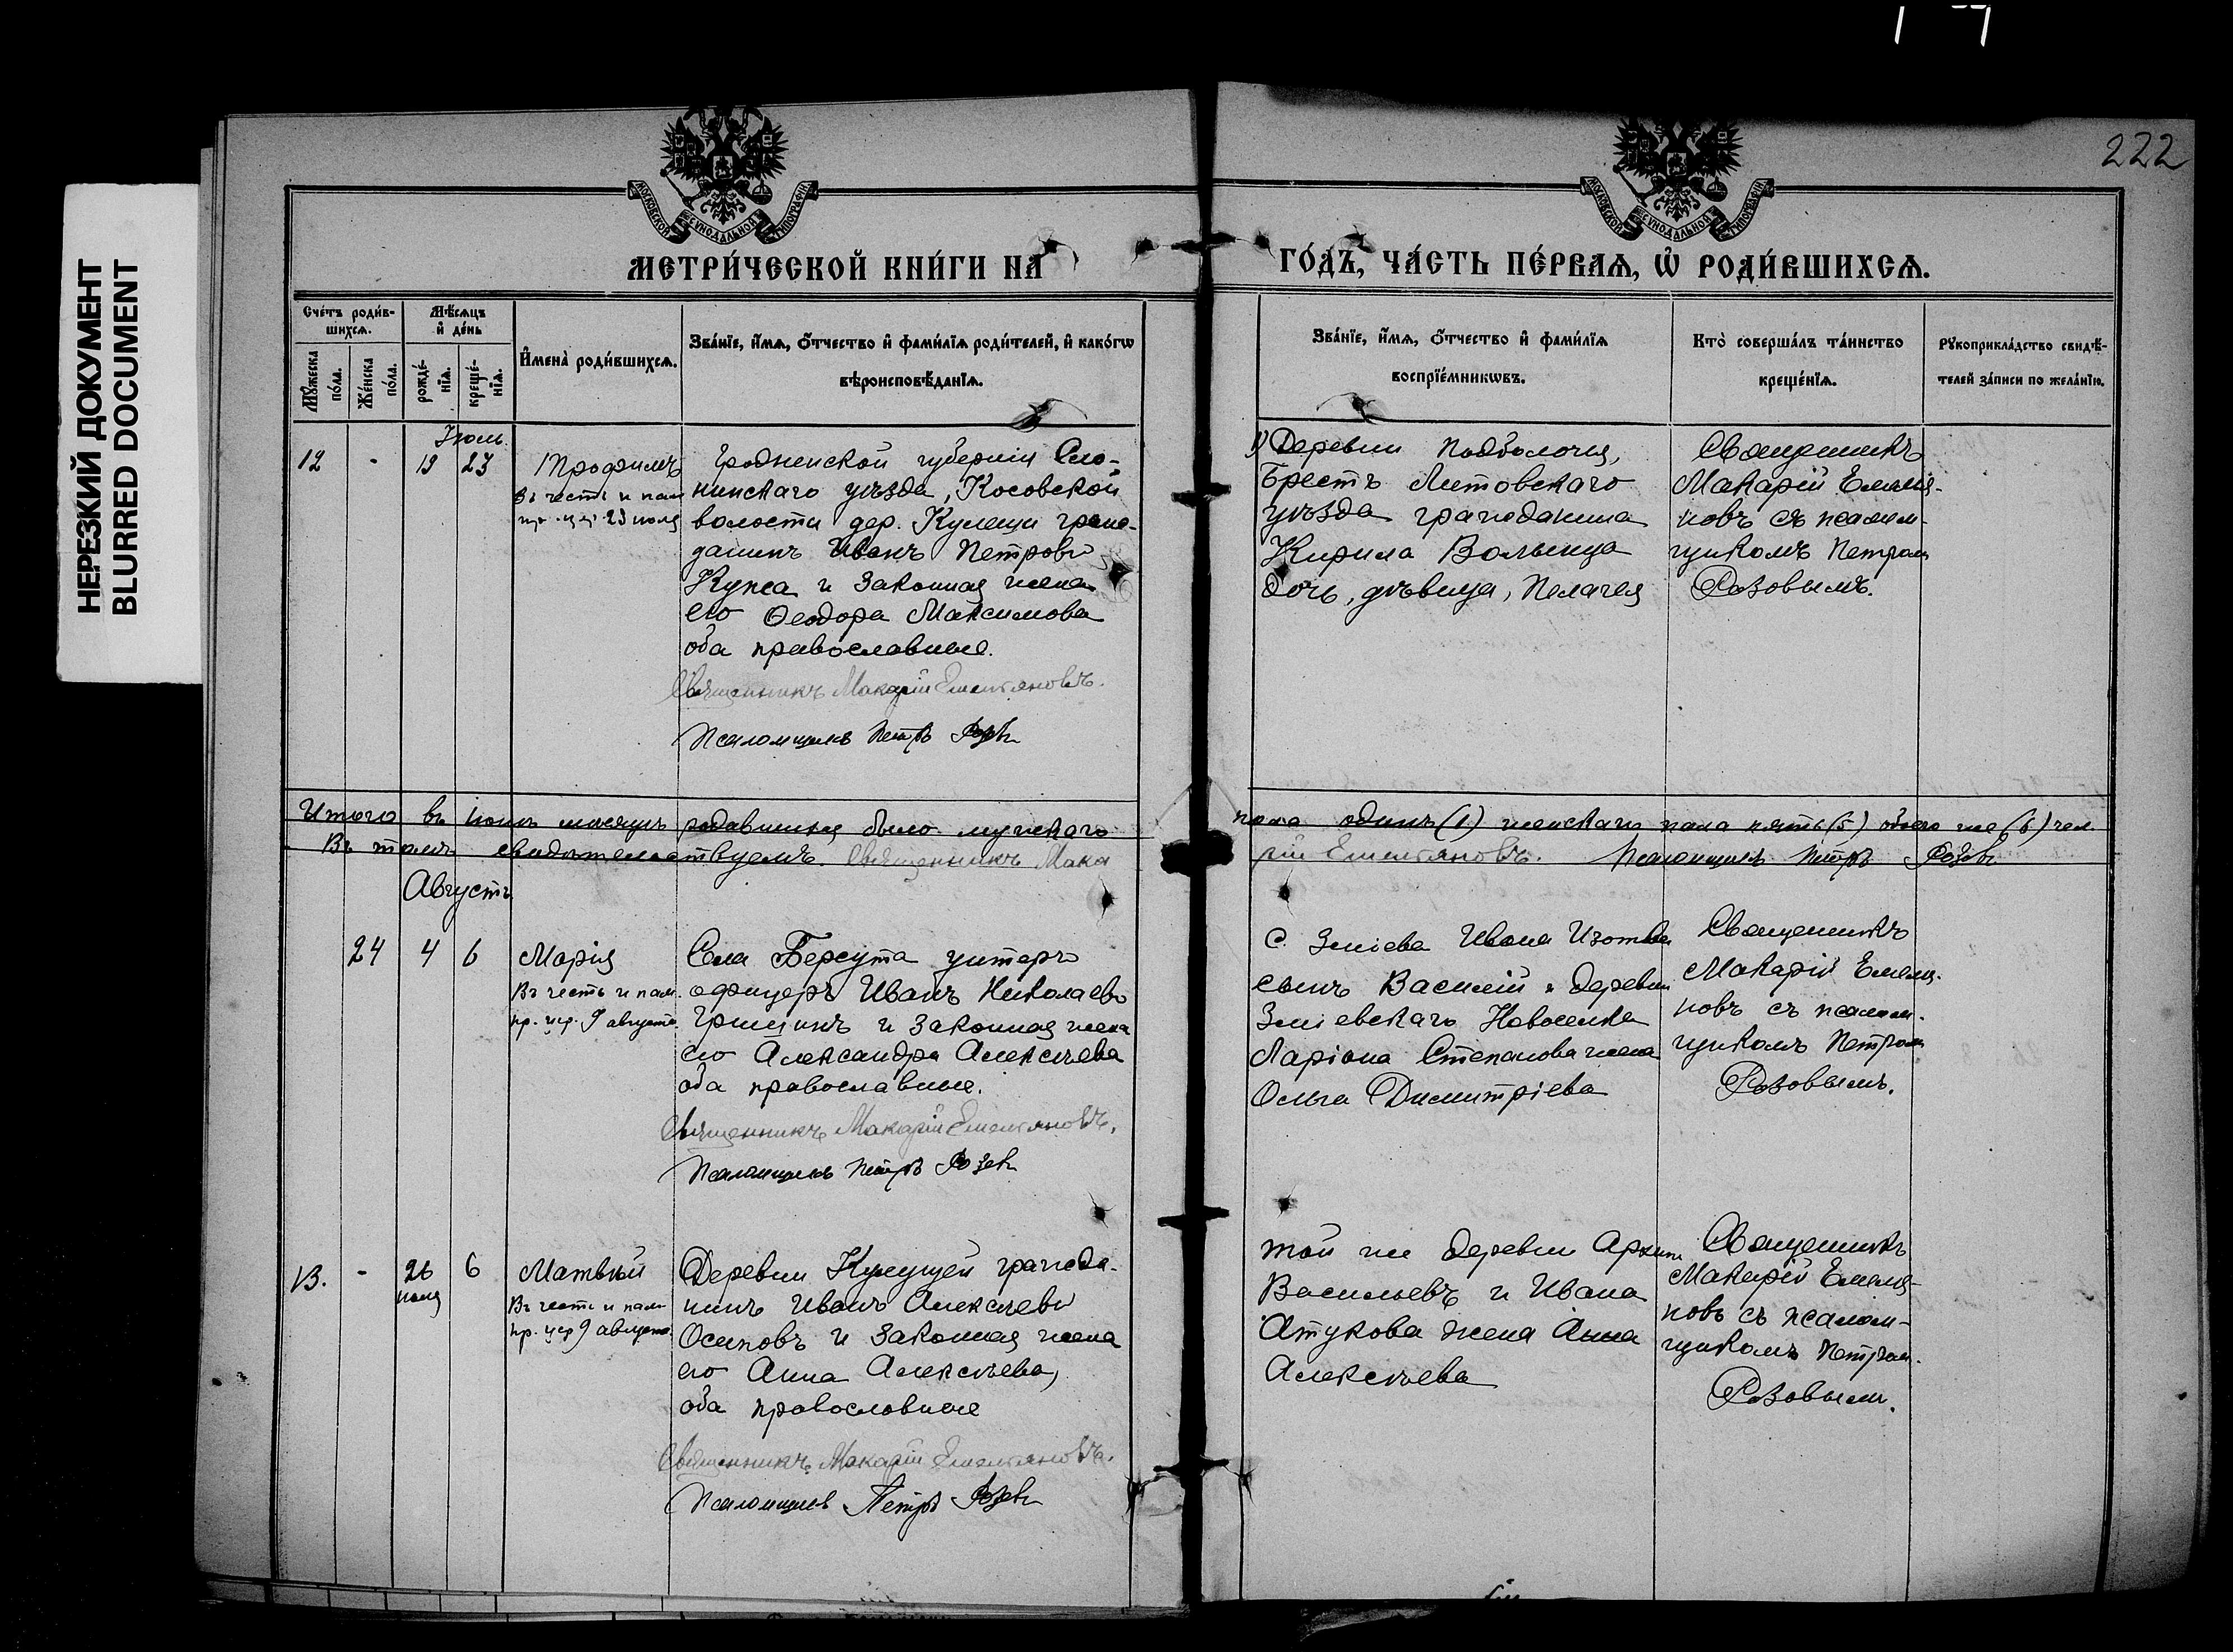 НЕРЕЗКИЙ ДОКУМЕНТ
BLURRED DOCUMENT
222
МОСКОВСКОЙ СѴНОДАЛЬНОЙ ТИПОГРАФІИ
МОСКОВСКОЙ СѴНОДАЛЬНОЙ ТИПОГРАФІИ
МЕТРИ́ЧЕСКОЙ КНИ́ГИ НА
ГО́ДЪ, ЧА́СТЬ ПЕ́РВАѦ, Ѽ РОДИ́ВШИХСѦ.
Сче́тъ роди́в-
шихсѧ.
Мѣ́сѧцъ
и҆ де́нь
Мꙋ́жеска
по́ла.
Же́нска
по́ла.
рожде́-
нїѧ.
креще́-
нїѧ.
И҆мена̀ роди́вшихсѧ.
Зва́нїе, и҆́мѧ, ѻ҆́тчество и҆ фами́лїѧ роди́телей, и҆ како́гѡ
вѣроисповѣ́данїѧ.
Зва́нїе, и҆́мѧ, ѻ҆́тчество и҆ фами́лїѧ
воспрїе́мникѡвъ.
Кто̀ соверша́лъ та́инство
креще́нїѧ.
Рꙋкоприкла́дство свидѣ́-
телей за́писи по жела́нїю.
Іюль.
12 - 19 23
Трофимъ
Въ честь и пам
пр. 23 іюля
Гродненской губерніи Сло-
нимскаго уѣзда, Косовской
волости дер. Кулеши граж-
данинъ Иванъ Петровъ
Купса и законная жена
его Ѳеодора Максимова
оба православные.
Священникъ Макарій Емельяновъ.
Псаломщикъ Петръ Розовъ
Деревни Подболочья,
Брестъ Литовскаго
уѣзда гражданина
Кирила Волынца
дочь, дѣвица, Пелагея
Священникъ
Макарій Емелья-
новъ съ псалом-
щикомъ Петромъ
Розовымъ.
Итого въ іюлѣ мѣсяцѣ родившихся было мужскаго
пола одинъ (1) женскаго пола пять (5) обоего же (6) чел.
Въ томъ свидѣтельствуемъ. Священникъ Мака
рій Емельяновъ. Псаломщикъ Петръ Розовъ
Августъ
24 4 6
Марія
Въ честь и пам.
пр. цер. 9 августа.
Села Берсута унтеръ
офицеръ Иванъ Николаевъ
Гришинъ и законная жена
его Александра Алексѣева
оба православные.
Священникъ Макарій Емельяновъ.
Псаломщикъ Петръ Розовъ
С. Зміева Ивана Изотова
сынъ Василій и деревни
Зміевскаго Новоселка
Ларіона Степанова жена
Ольга Димитріева
Священникъ
Макарій Емелья-
новъ съ псалом-
щикомъ Петромъ
Розовымъ.
13. - 26 6
іюля
Матвѣй
Въ честь и пам
пр. цер 9 августа
Деревни гражда-
нинъ Иванъ Алексѣевъ
Осиповъ и законная жена
его Анна Алексѣева,
оба православные
Священникъ Макарій Емельяновъ.
Псаломщикъ Петръ Розовъ
той же деревни Архипъ
Васильевъ и Ивана
Атукова жена Анна
Алексѣева
Священникъ
Макарій Емелья-
новъ съ псалом-
щикомъ Петром.
Розовымъ.